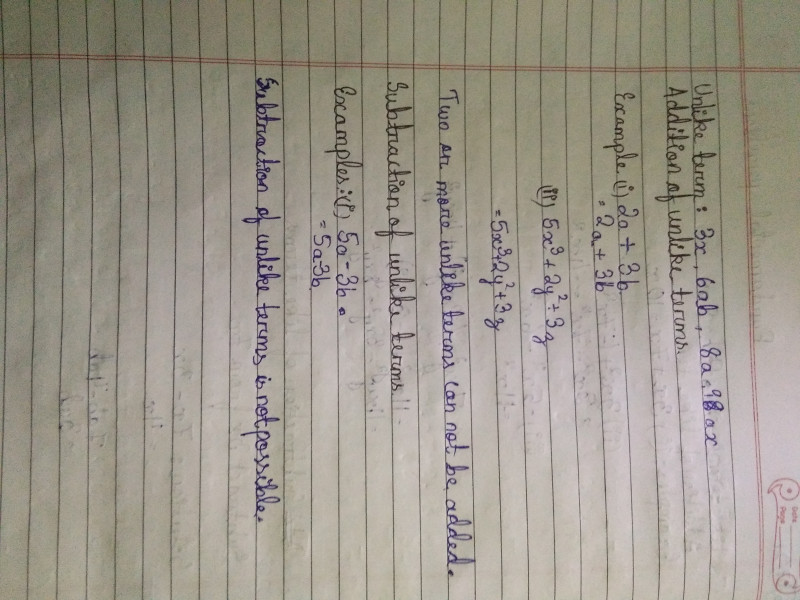 Date
Page
Unlike term : 3x, 6ab, 8a, 98ax
Addition of unlike terms.
Example (i) 2a + 3b
= 2a + 3b
(ii) 5x³ + 2y² + 3z
= 5x³+2y²+3z
Two or more unlike terms can not be added.
Subtraction of unlike terms
Examples:(i) 5a - 3b
= 5a-3b
Subtraction of unlike terms is not possible.